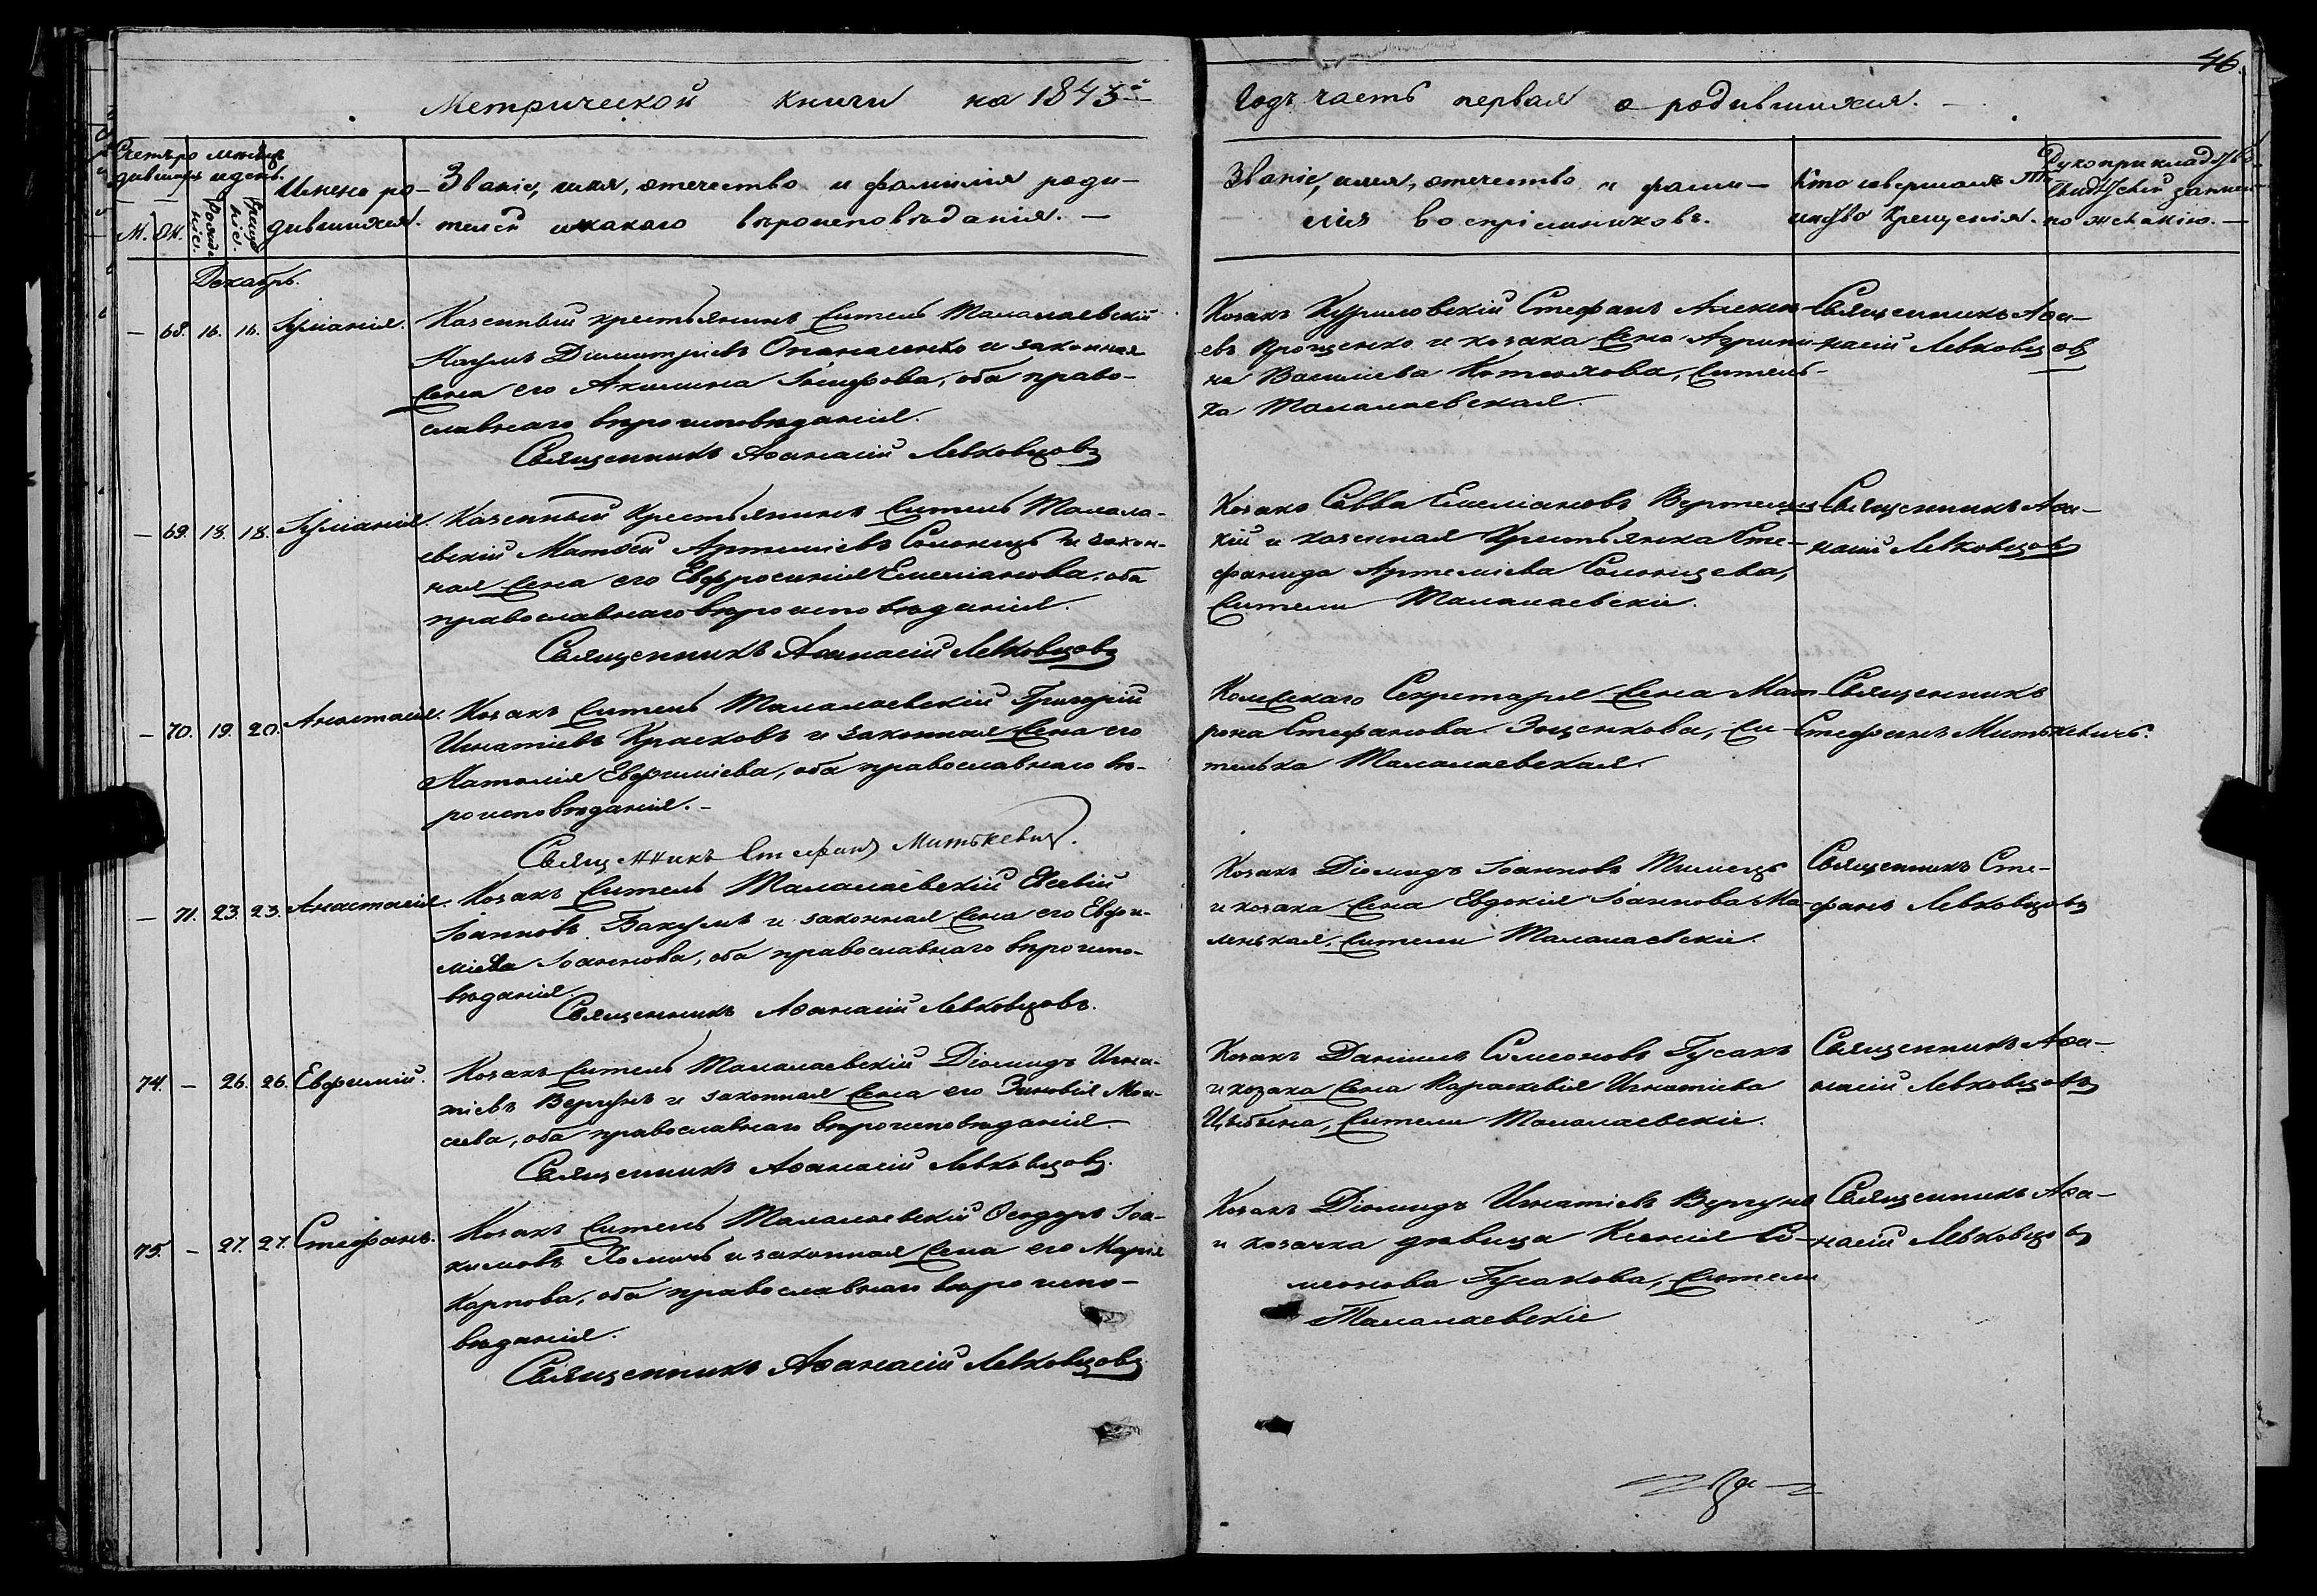 46.
Метрической книги на 1845й
Годъ часть первая о родившихся.
Счетъ ро-
дившихся
М. Ж.
Мѣсяцъ
и день.
Рожде-
нія.
Креще-
нія.
Имена ро-
дившихся.
Званіе, имя, отечество и фамилія роди-
телей и какого вѣроисповѣданія.
Званіе, имя, отечество и фами-
лія воспріемниковъ.
Кто совершалъ Та-
инство Крещенія.
Рукоприкладство
свидѣтелей записи
по желанію.
Декабрь.
— 68. 16. 16. Іуліанія.
Казенный крестьянинъ житель Талалаевскій
Наумъ Димитріевъ Опанасенко и законная
жена его Акилина Іосифова, оба право-
славнаго вѣроисповѣданія.
Священникъ Аѳанасій Левковцовъ
Козакъ Куриловскій Стефанъ Алексѣ-
евъ Яроценко и козака жена Агрипи-
на Василіева Котлякова, житель-
ка Талалаевская.
Священникъ Аѳа-
насій Левковцовъ
— 69. 18. 18. Іуліанія.
Казенный Крестьянинъ житель Талала-
евскій Матѳей Артеміевъ Солонецъ и закон-
ная жена его Евфросинія Емеліанова, оба
православнаго вѣроисповѣданія.
Священникъ Аѳанасій Левковцовъ
Козакъ Савва Емеліановъ Вертец-
кій и казенная Крестьянка Сте-
фанида Артеміева Солонцева,
жители Талалаевскіе.
Священникъ Аѳа-
насій Левковцовъ
— 70. 19. 20. Анастасія.
Козакъ житель Талалаевскій Григорій
Игнатіевъ Красковъ и законная жена его
Наталія Евфиміева, оба православнаго вѣ-
роисповѣданія.
Священникъ Стефанъ Митькевичъ.
Колежскаго Секретаря жена Мат-
рона Стефанова Зощенкова, жи-
телька Талалаевская.
Священникъ
Стефанъ Митькевичъ.
— 71. 23. 23. Анастасія.
Козакъ житель Талалаевскій Евсевій
Іоанновъ Бакумъ и законная жена его Евфи-
міева Іоаннова, оба православнаго вѣроиспо-
вѣданія.
Священникъ Аѳанасій Левковцовъ.
Козакъ Діомидъ Іоанновъ Тимецъ
и козака жена Евдокія Іоаннова Ма-
ленькая, жители Талалаевскіе.
Священникъ Сте-
фанъ Левковцовъ
74. — 26. 26. Евфимій.
Козакъ житель Талалаевскій Діомидъ Игна-
тіевъ Вергунъ и законная жена его Зиновія Мои-
сеева, оба православнаго вѣроисповѣданія.
Священникъ Аѳанасій Левковцовъ.
Козакъ Даніилъ Симеоновъ Гусакъ
и козака жена Параскевія Игнатіева
Цыбына, жители Талалаевскіе.
Священникъ Аѳа-
насій Левковцовъ
75. — 27. 27. Стефанъ.
Козакъ житель Талалаевскій Ѳеодоръ Іоа-
кимовъ Хомичъ и законная жена его Марія
Карпова, оба православнаго вѣроиспо-
вѣданія.
Священникъ Аѳанасій Левковцовъ
Козакъ Діомидъ Игнатіевъ Вергунъ
и козачка дѣвица Ксенія Си-
меонова Гусакова, жители
Талалаевскіе
Священникъ Аѳа-
насій Левковцовъ